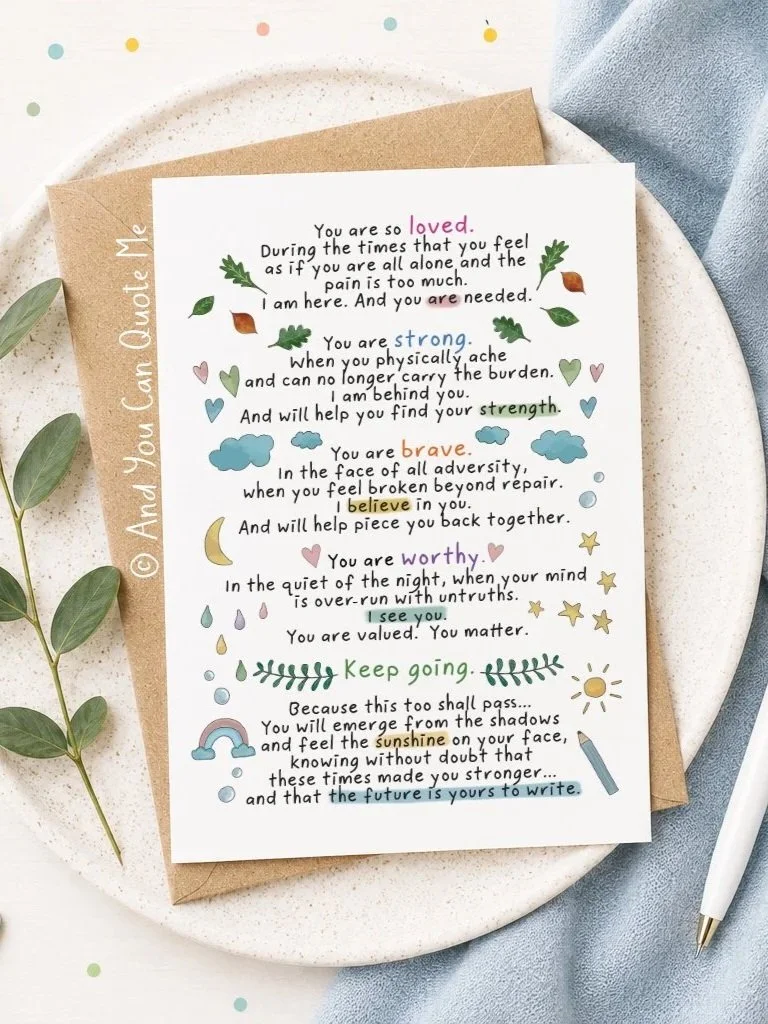 You are so loved.
During the times that you feel
as if you are all alone and the
pain is too much.
I am here. And you are needed.
You are strong.
When you physically ache
and can no longer carry the burden.
I am behind you.
And will help you find your strength.
You are brave.
In the face of all adversity,
when you feel broken beyond repair.
I believe in you.
And will help piece you back together.
You are worthy.
In the quiet of the night, when your mind
is over-run with untruths.
I see you.
You are valued. You matter.
Keep going.
Because this too shall pass...
You will emerge from the shadows
and feel the sunshine on your face,
knowing without doubt that
these times made you stronger...
and that the future is yours to write.
© And You Can Quote Me